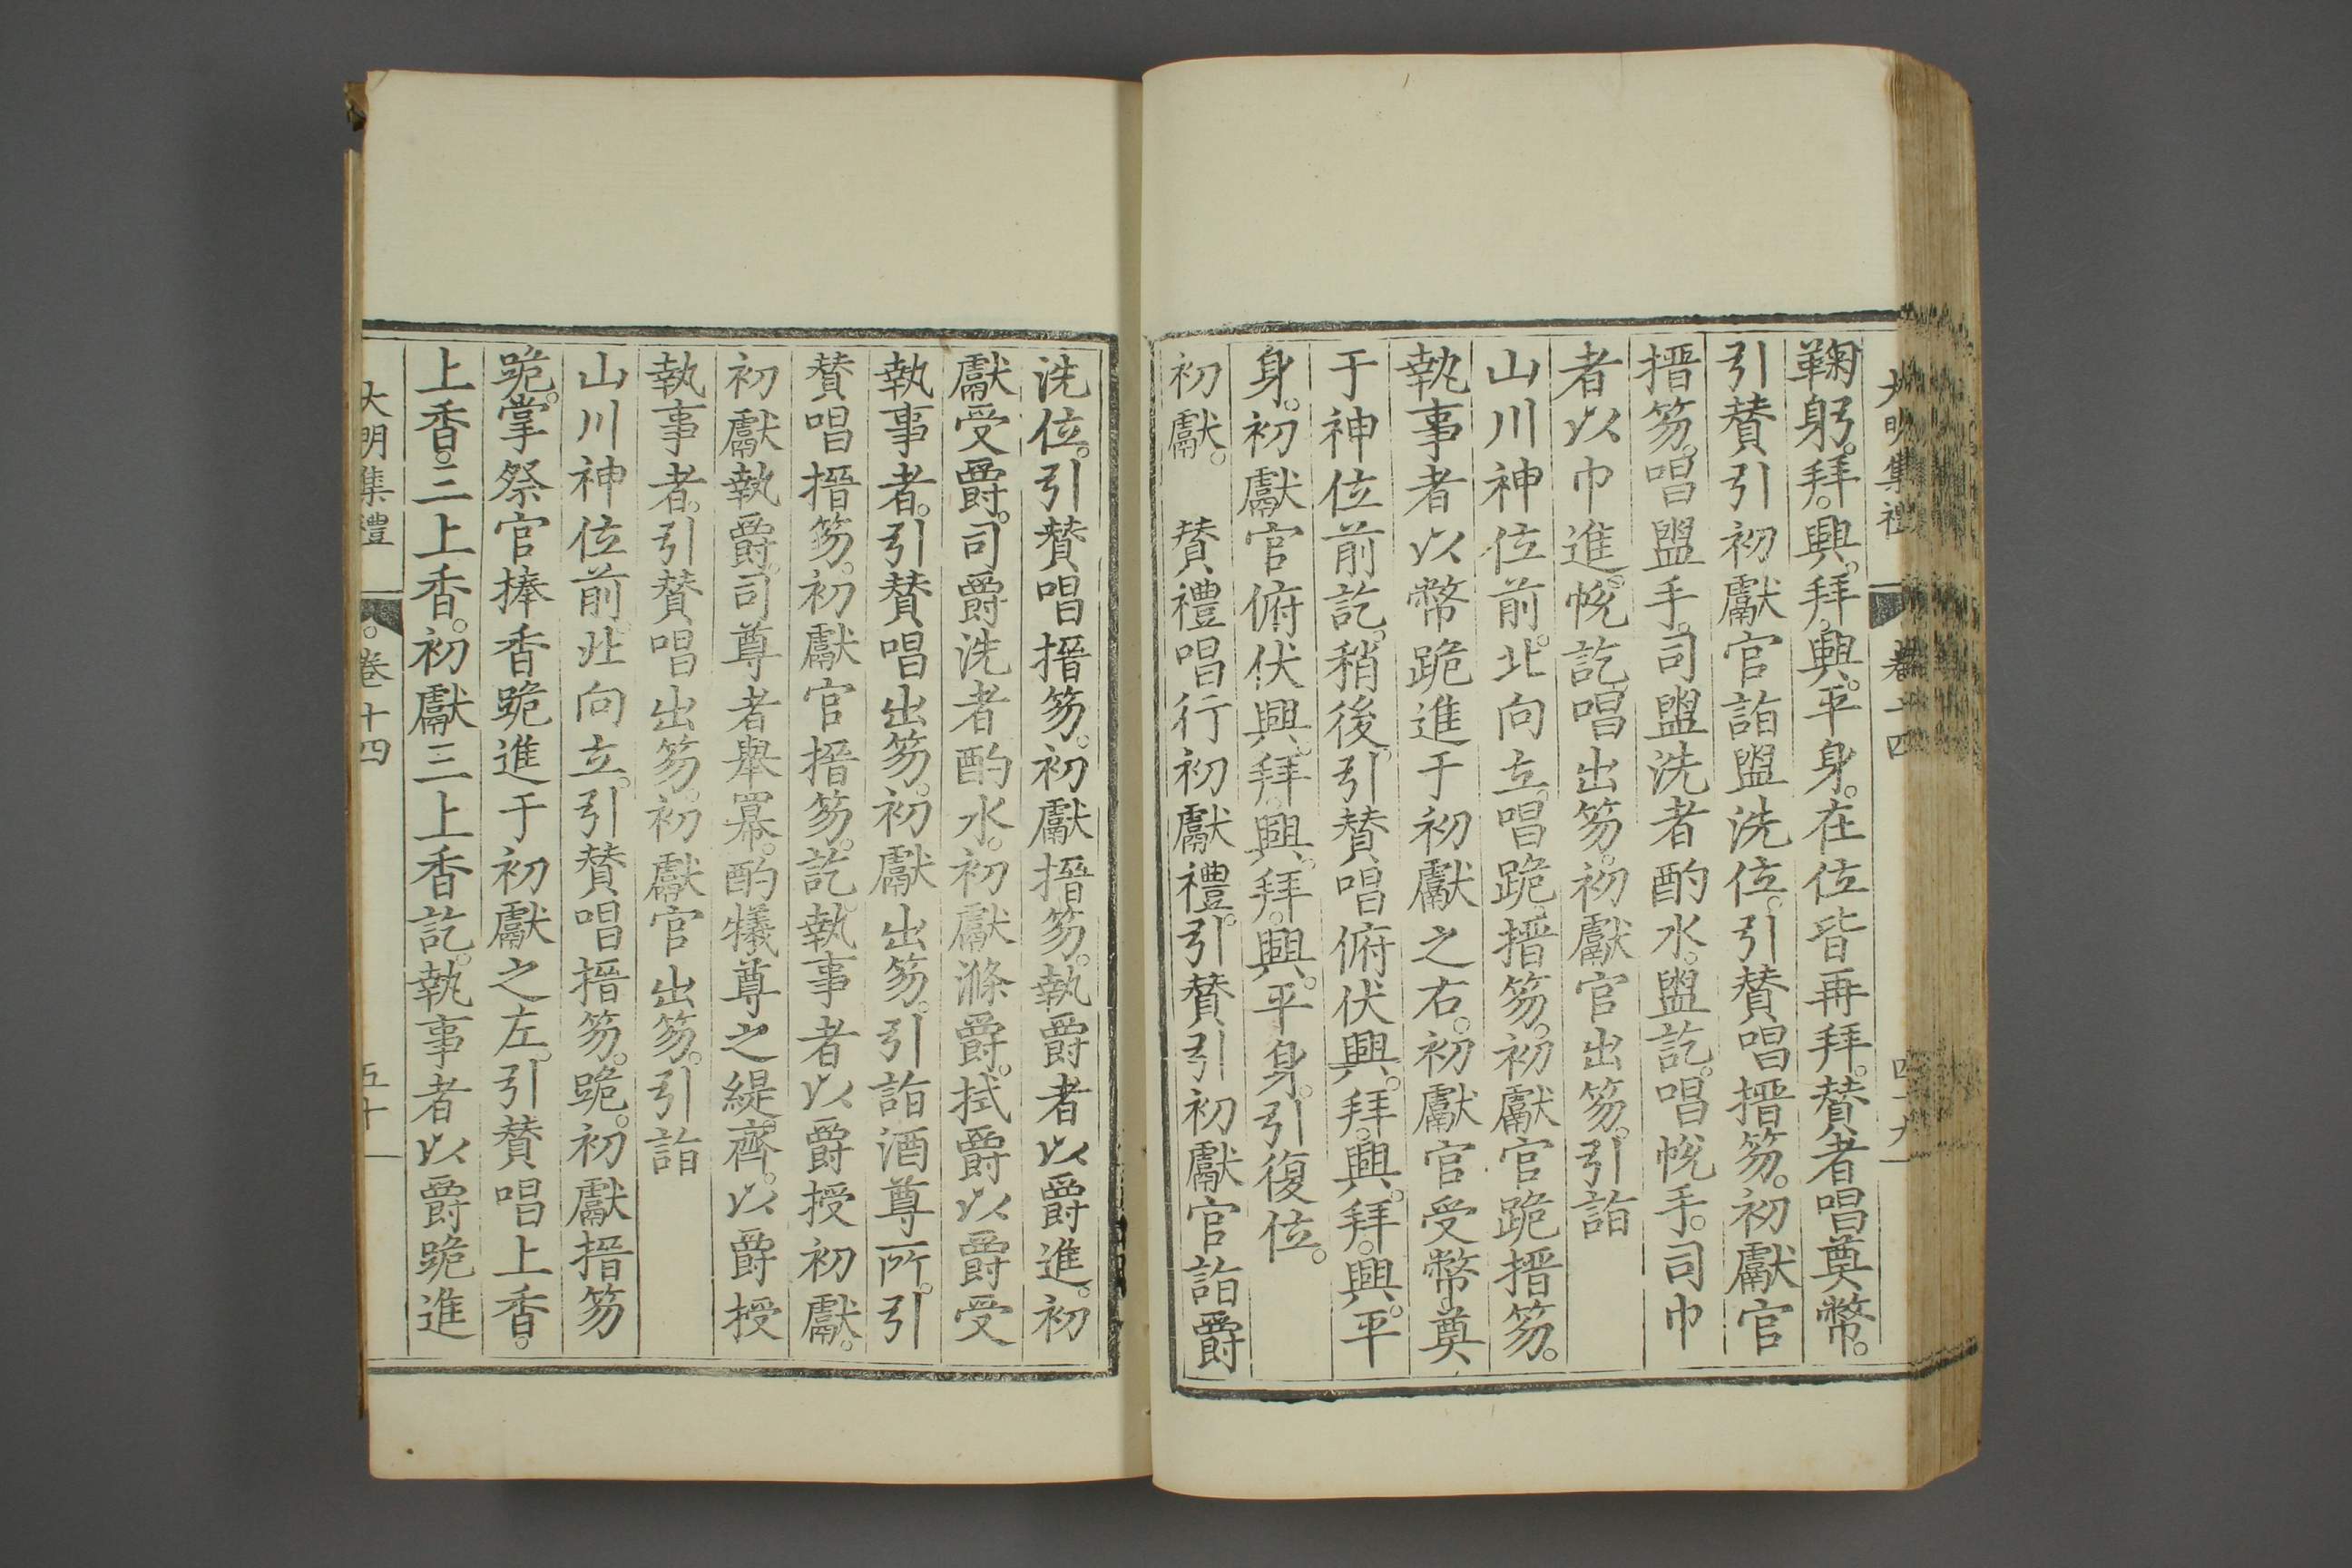 大明集禮 卷十四
鞠躬。拜。興。拜。興。平身。在位皆再拜。賛者唱奠幣。
引賛引初獻官詣盥洗位。引賛唱搢笏。初獻官
搢笏。唱盥手。司盥洗者酌水。盥訖。唱帨手。司巾
者以巾進。帨訖。唱出笏。初獻官出笏。引詣
山川神位前。北向立。唱跪。搢笏。初獻官跪搢笏。
執事者以幣跪進于初獻之右。初獻官受幣。奠
于神位前訖。稍後。引賛唱俯伏興。拜。興。拜。興。平
身。初獻官俯伏興。拜。興。拜。興。平身。引復位。
初獻。　賛禮唱行初獻禮。引賛引初獻官詣爵
洗位。引賛唱搢笏。初獻搢笏。執爵者以爵進。初
獻受爵。司爵洗者酌水。初獻滌爵。拭爵以爵受
執事者。引賛唱出笏。初獻出笏。引詣酒尊所。引
賛唱搢笏。初獻官搢笏。訖。執事者以爵授初獻。
初獻執爵。司尊者舉羃。酌犧尊之緹齊。以爵授
執事者。引賛唱出笏。初獻官出笏。引詣
山川神位前。北向立。引賛唱搢笏。跪。初獻搢笏
跪。掌祭官捧香跪進于初獻之左。引賛唱上香。
上香。二上香。初獻三上香訖。執事者以爵跪進
大明集禮 卷十四 五十